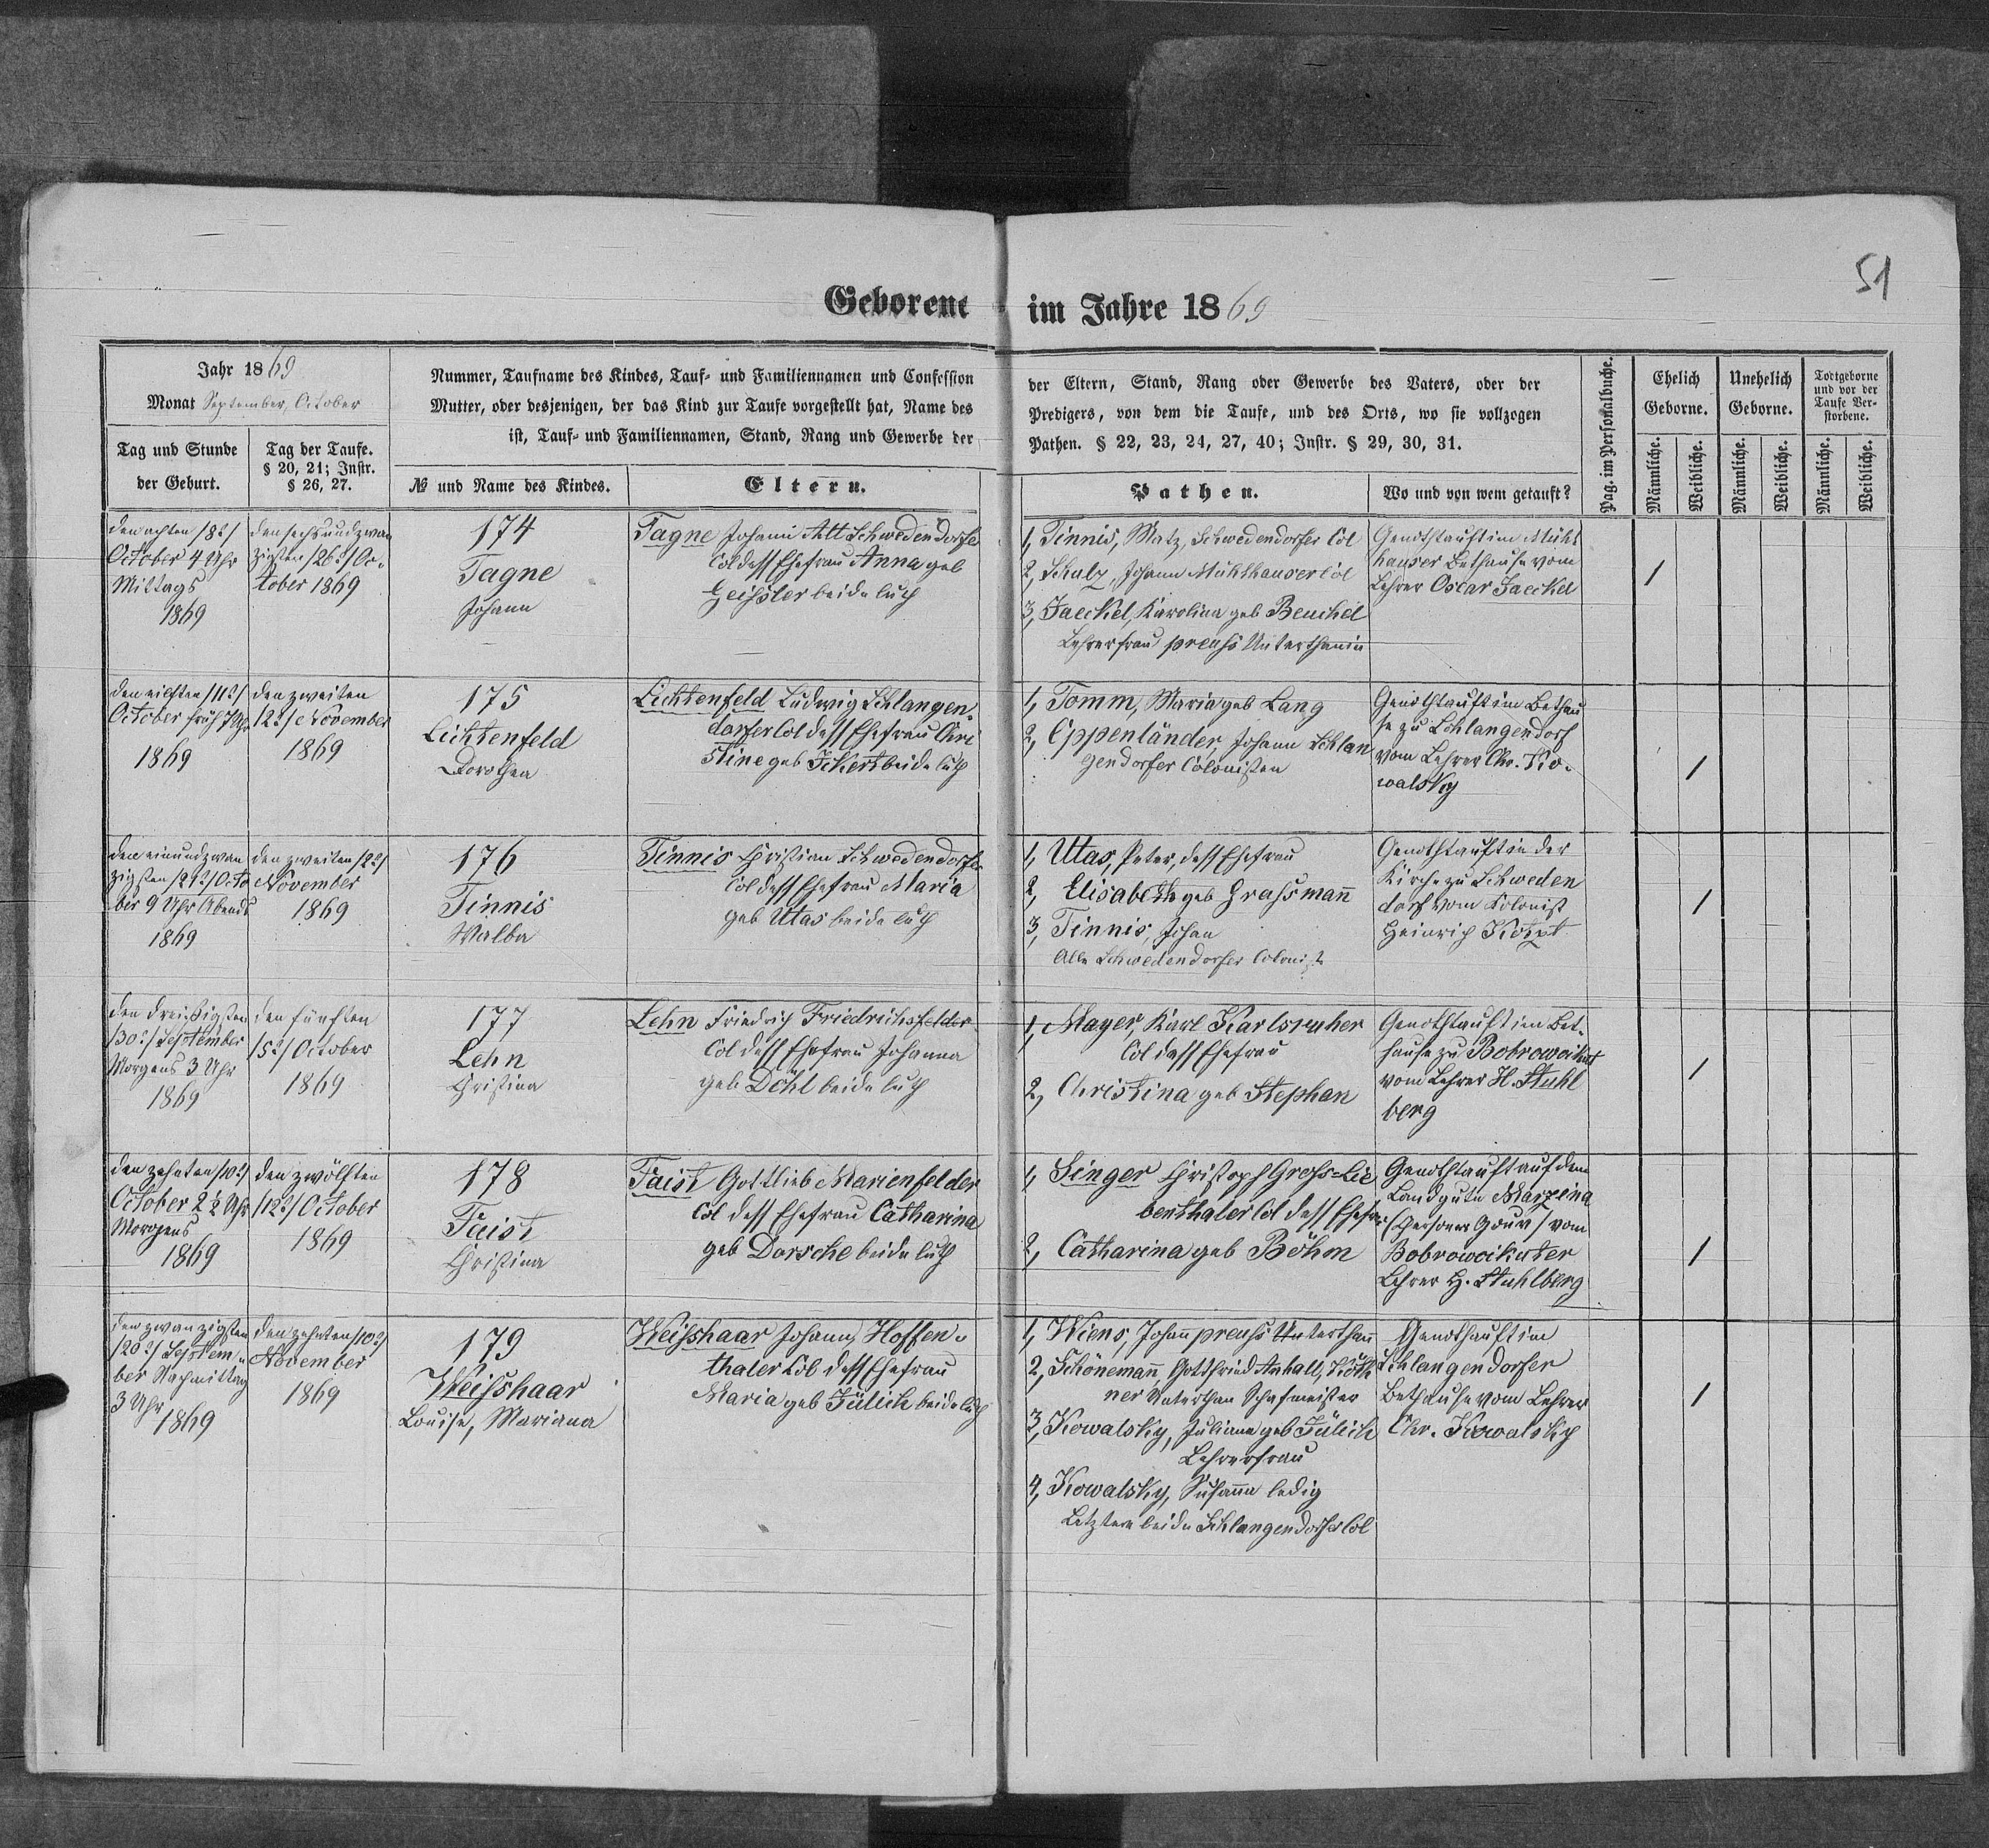 51
Geborene im Jahre 1869
Jahr 1869
Monat September, October
Tag und Stunde
der Geburt.
Tag der Taufe.
§ 20, 21; Instr.
§ 26, 27.
Nummer, Taufname des Kindes, Tauf- und Familiennamen und Confession
Mutter, oder desjenigen, der das Kind zur Taufe vorgestellt hat, Name des
ist, Tauf- und Familiennamen, Stand, Rang und Gewerbe der
№ und Name des Kindes.
Eltern.
der Eltern, Stand, Rang oder Gewerbe des Vaters, oder der
Predigers, von dem die Taufe, und des Orts, wo sie vollzogen
Pathen. § 22, 23, 24, 27, 40; Instr. § 29, 30, 31.
Pathen.
Wo und von wem getauft?
Pag. im Personalbuche.
Ehelich
Geborne.
Unehelich
Geborne.
Todtgeborne
und vor der
Taufe Ver-
storbene.
Männliche.
Weibliche.
Männliche.
Weibliche.
Männliche.
Weibliche.
den achten /8ͭ/
October 4 Uhr
Mittags
1869
den sechsundzwan
zigsten /26ͭ/ Oc-
tober 1869
174
Tagne
Johann
Tagne Johann Alt Schwedendorfer
Col dess Ehefrau Anna geb
Geissler beide luth
1, Tinnis, Matz, Schwedendorfer Col
2, Schulz, Johann Mühlhauser Col
3, Jaeckel, Karolina geb Beuchel
Lehrerfrau preuss Unterthanin
Genothtauft im Mühl
hauser Bethause vom
Lehrer Oscar Jaeckel
/
den eilften /11ͭ/
October früh 7 Uhr
1869
den zweiten
/2ͭ/ November
1869
175
Lichtenfeld
Dorothea
Lichtenfeld Ludwig Schlangen-
dorfer Col dess Ehefrau Chri
stine geb Ickert beide luth
1, Tomm, Maria geb Lang
2, Eppenländer, Johann Schlan
gendorfer Colonisten
Genothtauft im Bethau
se zu Schlangendorf
vom Lehrer Chr. Ko-
walsky
/
den einundzwan
zigsten /21ͭ/ Octo
ber 9 Uhr Abends
1869
den zweiten /2ͭ/
November
1869
176
Tinnis
Walba
Tinnis Christian Schwedendorfer
Col dess Ehefrau Maria
geb Utas beide luth
1, Utas, Peter, dess Ehefrau
2, Elisabeth geb Grassmann
3, Tinnis, Johan
Alle Schwedendorfer Coloniste
Genothtauft in der
Kirche zu Schweden
dorf vom Kolonist
Heinrich Kotzt
/
den dreissigsten
/30ͭ/ September
Morgens 3 Uhr
1869
den fünften
/5ͭ/ October
1869
177
Lehn
Christina
Lehn Friedrich Friedrichsfelder
Col dess Ehefrau Johanna
geb Döhl beide luth
1, Mayer, Karl Karlsruher
Col dess Ehefrau
2, Christina geb Stephan
Genothtauft im Bet-
hause zu Bobrowoikut
vom Lehrer H. Stuhl
berg
/
den zehnten /10ͭ/
October 2½ Uhr
Morgens
1869
den zwölften
/12ͭ/ October
1869
178
Faist
Christina
Faist Gottlieb Marienfelder
Col dess Ehefrau Catharina
geb Dorsche beide luth
1, Singer Christoph Gross=Lie
benthaler Col dess Ehefrau
2, Catharina geb Böhm
Genothtauft auf dem
Landgute Marzina
(Cherson Gouv) vom
Bobrowoikuter
Lehrer H. Stuhlberg
/
den zwanzigsten
/20ͭ/ Septem-
ber Nachmittag
3 Uhr
1869
den zehnten /10ͭ/
November
1869
179
Weisshaar
Louise, Mariana
Weisshaar Johann Hoffen-
thaler Col dess Ehefrau
Maria geb Jülich beide luth
1, Wiens, Johann preuss Unterthan
2, Schönemann, Gottfried Anhalt, Köth
ner Unterthan Schafmeister
3, Kowalsky, Juliana geb Jülich
Lehrerfrau
4, Kowalsky, Susanna ledig
Letztere beide Schlangendorfer Col
Genothtauft im
Schlangendorfer
Bethause vom Lehrer
Chr. Kowalsky
/